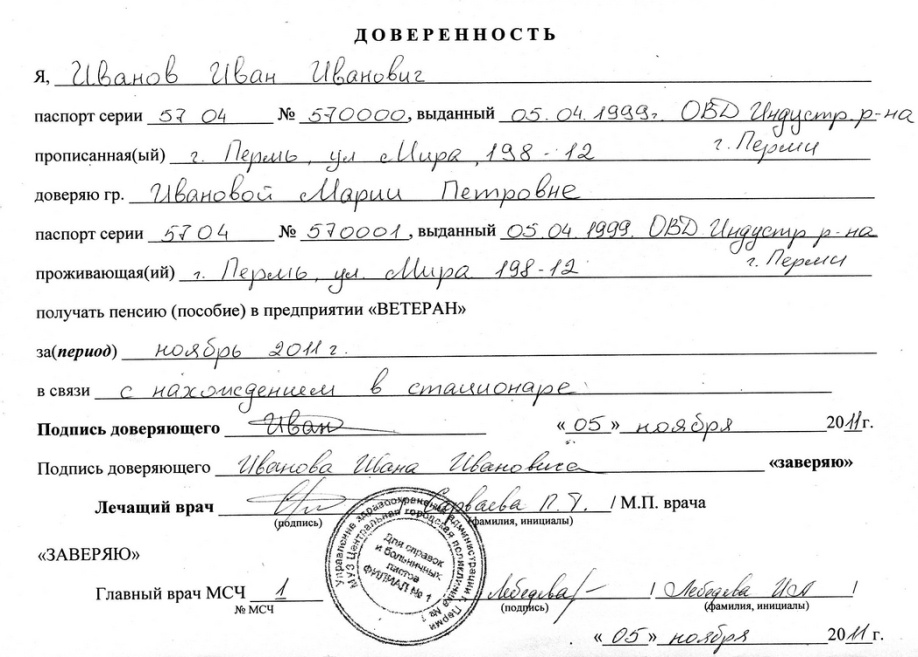 ДОВЕРЕННОСТЬ
Я, Иванов Иван Иванович
паспорт серии 57 04 № 570000, выданный 05.04.1999г. ОВД Индустр. р-на
г. Перми
прописанная(ый) г. Пермь, ул Мира, 198 - 12
доверяю гр. Ивановой Марии Петровне
паспорт серии 57 04 № 570001, выданный 05.04.1999. ОВД Индустр р-на
г. Перми
проживающая(ий) г. Пермь, ул. Мира 198-12
получать пенсию (пособие) в предприятии «ВЕТЕРАН»
за(период) ноябрь 2011 г.
в связи с нахождением в стационаре
Подпись доверяющего Иван «05» ноября 2011г.
Подпись доверяющего Иванова Ивана Ивановича «заверяю»
Лечащий врач / П. Т. / М.П. врача
(подпись) (фамилия, инициалы)
Управление здравоохранения администрации г. Перми
МУЗ Центральная городская поликлиника №
Для справок
и больничных
листов
ФИЛИАЛ № 1
«ЗАВЕРЯЮ»
Главный врач МСЧ 1 Лебедева / Лебедева /
№ МСЧ (подпись) (фамилия, инициалы)
«05» ноября 2011 г.